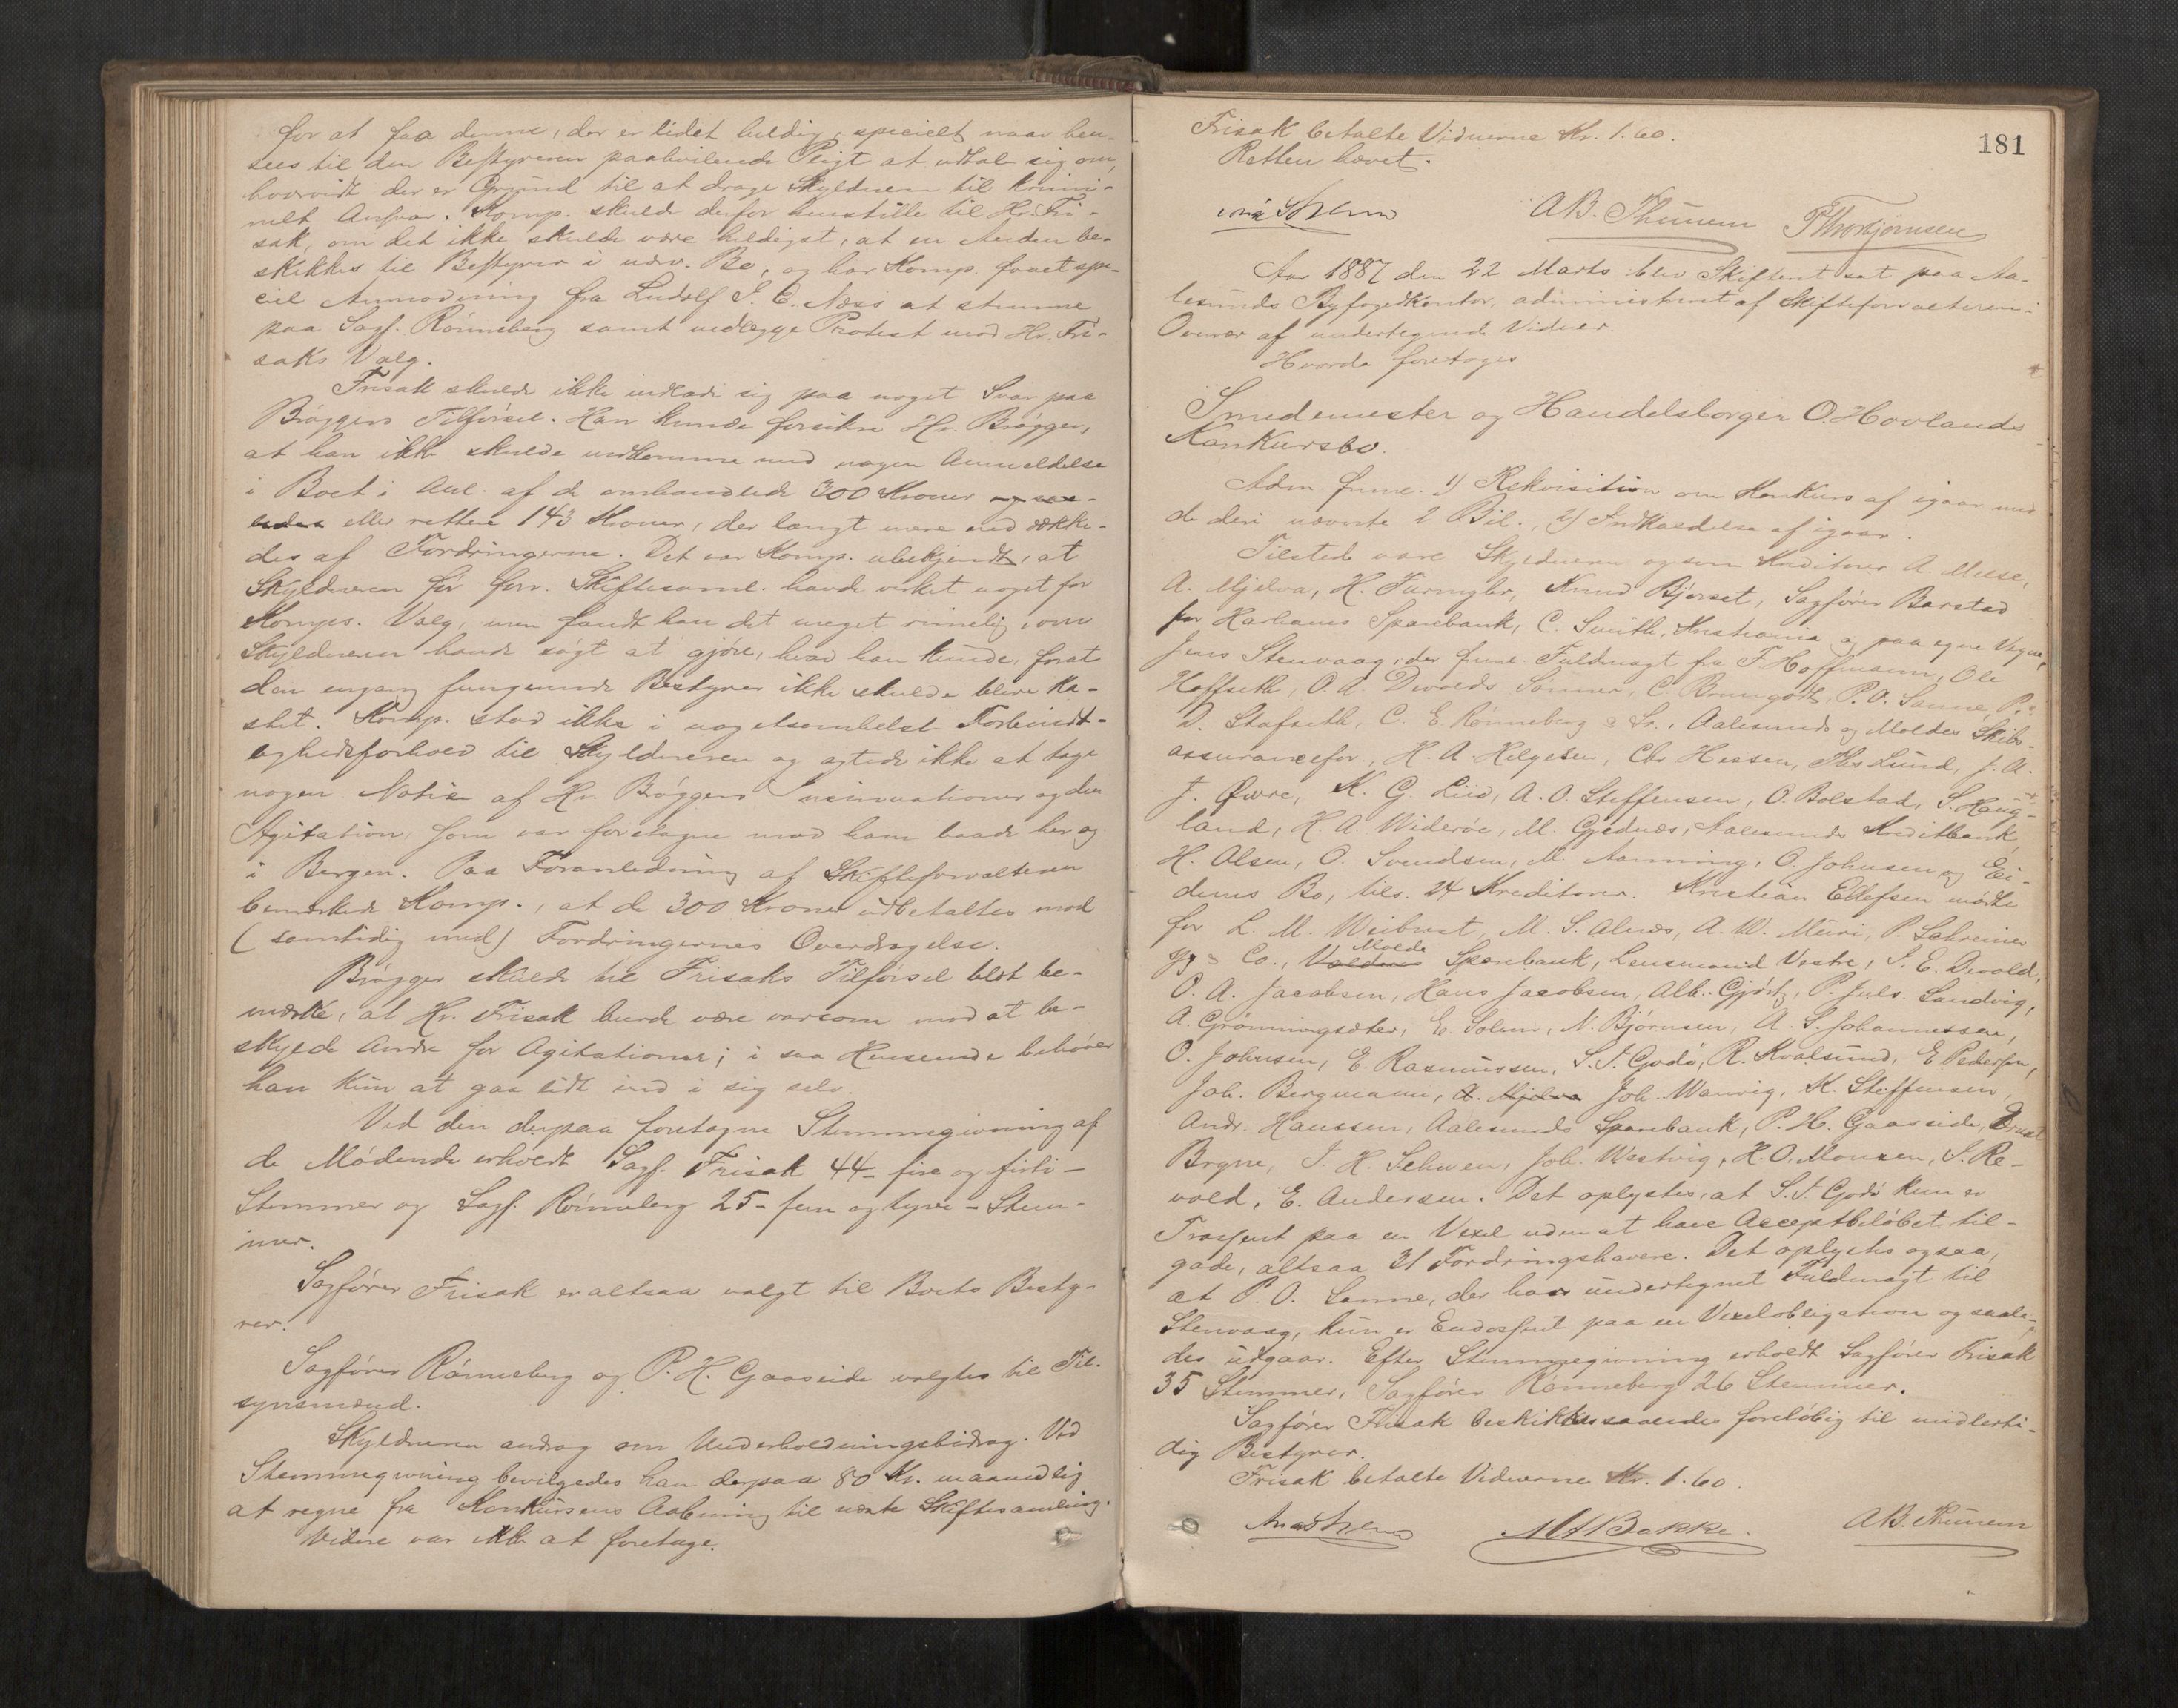 for at faa denne, der er lidet heldig, specielt naar hen-
sees til den Bestyreren paahvilende Pligt at udtale sig om,
hvorvidt der er Grund til at drage Skyldneren til krimi-
nelt Ansvar. Komp. skulde derfor henstille til Hr. Fri-
sak, om det ikke skulde være heldigst, at en Anden be-
skikkes til Bestyrer i nærv. Bo, og har Komp. faaet spe-
ciel Anmodning fra Ludolf J. C. Næss at stemme
paa Sagf. Rønneberg samt nedlægge Protest mod Hr. Fri-
saks Valg.
Frisak skulde ikke indlade sig paa noget Svar paa
Brøggers Tilførsel. Han kunde forsikre Hr. Brøgger,
at han ikke skulde indkomme med nogen Anmeldelse
i Boet i Anl. af de omhandlede 300 Kroner
eller rettere 143 Kroner, der langt mere end dække-
des af Fordringerne. Det var Komp. ubekjendt, at
Skyldneren før forr. Skiftesaml. havde virket noget for
Komps. Valg, men fandt han det meget rimelig, om
Skyldneren havde søgt at gjøre, hvad han kunde, forat
den engang fungerende Bestyrer ikke skulde blive ka-
stet. Komp. stod ikke i nogetsomhelst Forbindt-
lighedsforhold til Skyldneren og agtede ikke at tage
nogen Notis af Hr. Brøggers insinuationer og den
Agitation, som var foretagne mod ham baade her og
i Bergen. Paa Foranledning af Skifteforvalteren
bemærkede Komp., at de 300 Kroner udbetaltes mod
(samtidig med) Fordringernes Overdragelse.
Brøgger skulde til Frisaks Tilførsel blot be-
mærke, at Hr. Frisak burde være varsom med at be-
skylde Andre for Agitationer; i saa Henseende behøver
han kun at gaa lidt ind i sig selv.
Ved den derpaa foretagne Stemmegivning af
de Mødende erholdt Sagf. Frisak 44 - fire og firti -
Stemmer og Sagf. Rønneberg 25 - fem og tyve - Stem-
mer.
Sagfører Frisak er altsaa valgt til Boets Besty-
rer.
Sagfører Rønneberg og P. H. Gaaseide valgtes til Til-
synsmænd.
Skyldneren androg om Underholdningsbidrag. Ved
Stemmegivning bevilgedes han derpaa 80 Kr. maanedlig
at regne fra Konkursens Aabning til næste Skiftesamling.
Videre var ikke at foretage.
181
Frisak betalte Vidnerne Kr. 1.60.
Retten hævet.
AB. Thunem P Thorbjørnsen
Aar 1887 den 22 Marts blev Skifteret sat paa Aa-
lesunds Byfogedkontor, administreret af Skifteforvalteren i
Overvær af undertegnede Vidner.
Hvorda foretoges
Smedemester og Handelsborger O. Hovlands
Konkursbo.
Adm. freml. 1) Rekvisition om Konkurs af igaar med
de deri nævnte 2 Bil., 2) Indkaldelse af igaar.
Tilstede vare Skyldneren og som Kreditorer A. Melse,
A. Mjelva, H. Furmyhr, Knud Bjørset, Sagfører Barstad
for Harhams Sparebank, C. Smith, Kristiania og paa egne Vegne,
Jens Stenvaag, der freml. Fuldmagt fra F. Hoffmann, Ole
Hoffseth, O. A. Devolds Sønner, C. Bruungodt, P. O. Sanne, P.
D. Stafseth, C. E. Rønneberg & Sr., Aalesunds og Moldes Skibs-
assurancefor., H. A. Helgesen, Chr Hessen, Ths Lund, J. A.
J. Øwre, K. G. Liid, A. O. Steffensen, O. Bolstad, S. Haug-
land, H. A. Widerøe, M. Gjednæs, Aalesunds Kreditbank,
H. Olsen, O. Svendsen, M. Aanning, O. Johnsen og Ei-
dems Bo, tils. 24 Kreditorer. Kristian Ellefsen mødte
for L. M. Weibust, M. S. Alnæs, A. W. Muri, P. Schreiner
& Co., Voldens Molde Sparebank, Lensmand Vestre, J. E. Devold,
O. A. Jacobsen, Hans Jacobsen, Alb. Gjørtz, P. Juls. Sandvig,
A. Grønningsæter, E. Solem, N. Bjørnsen, A. S. Johannessen,
O. Johnsen, E. Rasmussen, S. J. Godø, R. Kvalsund, E. Pedersen,
Joh. Bergmann, A. Mjelva Joh. Wanvig, K. Steffensen,
Andr. Hanssen, Aalesunds Sparebank, P. H. Gaaseide, Knut
Bryne, J. H. Schwen, Joh. Westvig, H. O. Monsen, S. Re-
vold, E. Andersen. Det oplystes, at S. J. Godø kun er
Trassent paa en Vexel uden at have Acceptbeløbet til-
gode, altsaa 31 Fordringshavere. Det oplystes ogsaa,
at P. O. Sanne, der har undertegnet Fuldmagt til
Stenvaag, kun er Endossent paa en Vexelobligation og saale-
des udgaar. Efter Stemmegivning erholdt Sagfører Frisak
35 Stemmer, Sagfører Rønneberg 26 Stemmer.
Sagfører Frisak beskikkes saaledes foreløbig til midlerti-
dig Bestyrer.
Frisak betalte Vidnerne Kr. 1.60.
Bakke. AB. Thunem